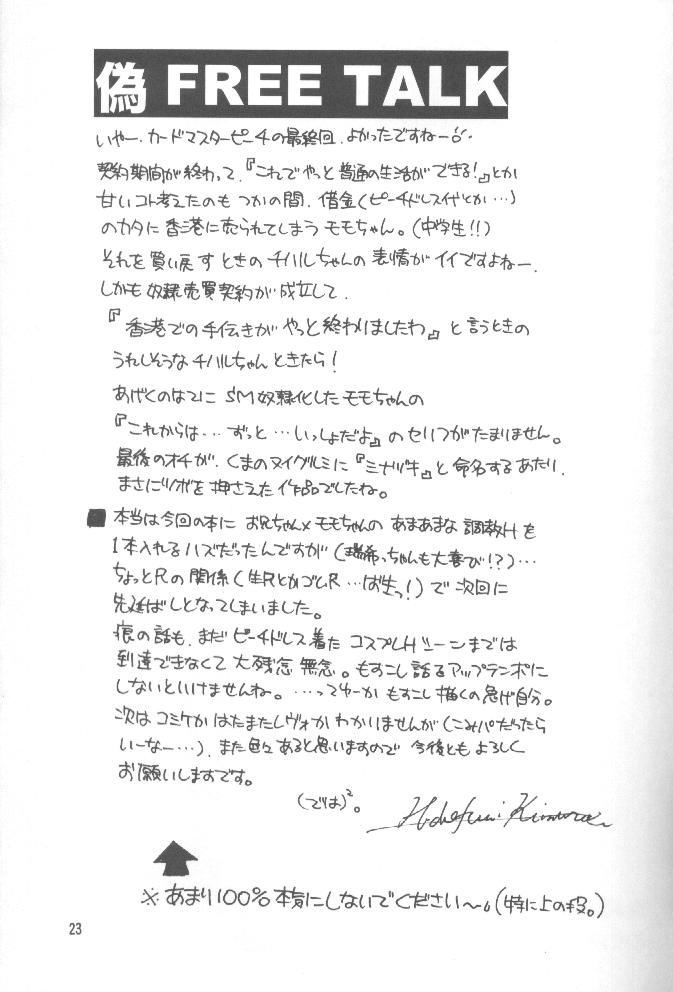 偽 FREE TALK
いやー、カードマスターピーチの最終回、よかったですねー
契約期間が終わって、『これでやっと普通の生活ができる!』とか
甘いコト考えたのもつかの間、借金(ピーチドレス代とか…)
のカタに香港に売られてしまうモモちゃん。(中学生!!)
それを買い戻すときのチハルちゃんの表情がイイですよねー。
しかも奴隷売買契約が成立して、
『香港での手伝きがやっと終わりましたわ』と言うときの
うれしそうなチハルちゃんときたら!
あげくのはてに SM奴隷化したモモちゃんの
『これからは…ずっと…いっしょだよ』のセリフがたまりません。
最後のオチが、くまのヌイグルミに『ミナヅキ』と命名するあたり、
まさにツボを押さえた作品でしたね。
■本当は今回の本に お兄ちゃん×モモちゃんの あまあまな 調教Hを
1本入れるハズだったんですが(瑞希っちゃんも大喜び!?)…
ちょっと尺の関係(生尺とかゴム尺…ば生っ!)で 次回に
先延ばしとなってしまいました。
痕の話も、まだ ピーチドレス着た コスプレHシーンまでは
到達できなくて 大残念 無念。もすこし話をアップテンポに
しないといけませんね。…ってゆーか もすこし描くの急げ自分。
次は コミケか はたまたレヴォか わかりませんが(こみパだったら
いーなー…)、また色々あると思いますので 今後とも よろしく
お願いしますです。
(では)²。
※あまり100%本気にしないでください〜。(特に上の段。)
23